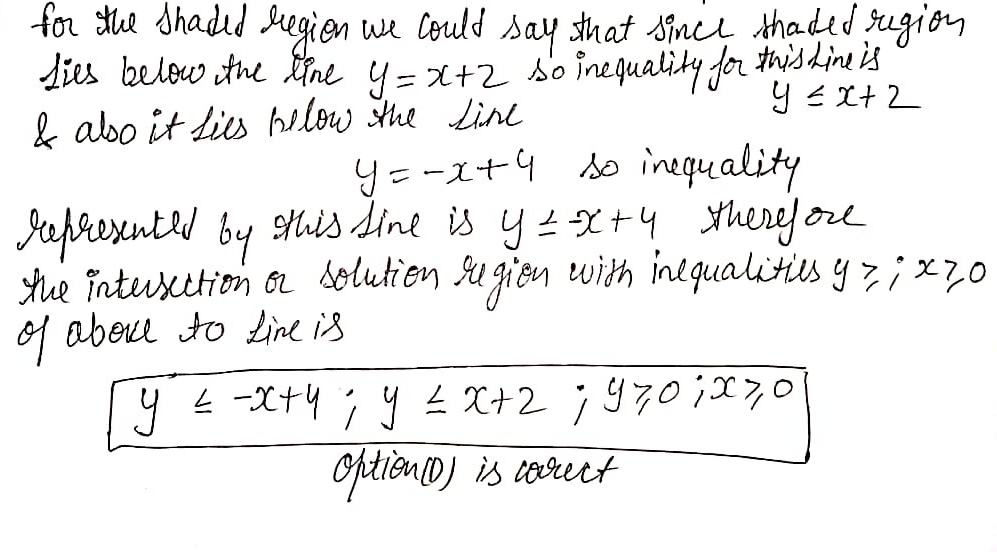 for the shaded region we could say that since shaded region
lies below the line y = x+2 so inequality for this line is
y ≤ x+2
& also it lies below the line
y = -x+4 so inequality
represented by this line is y ≤ -x+4 therefore
the intersection or solution region with inequalities y ≥ ; x ≥ 0
of above to line is
y ≤ -x+4 ; y ≤ x+2 ; y ≥ 0 ; x ≥ 0
option (D) is correct